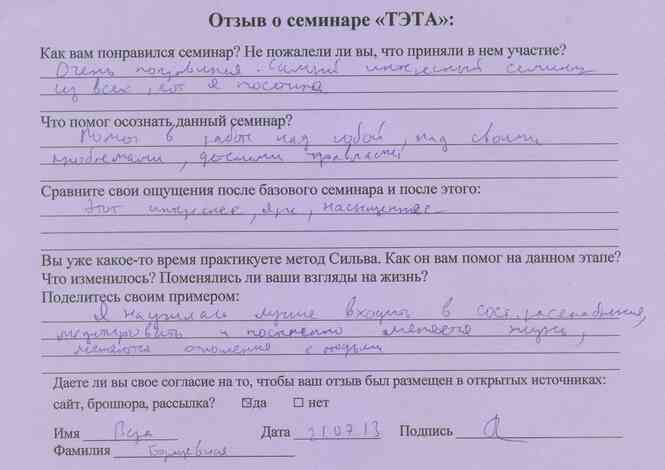 Отзыв о семинаре «ТЭТА»:
Как вам понравился семинар? Не пожалели ли вы, что приняли в нем участие?
Очень понравился. Самый интересный семинар
из всех, что я посетила
Что помог осознать данный семинар?
Помог в работе над собой, над своими
проблемами,
Сравните свои ощущения после базового семинара и после этого:
Этот интереснее, ярче, насыщеннее
Вы уже какое-то время практикуете метод Сильва. Как он вам помог на данном этапе?
Что изменилось? Поменялись ли ваши взгляды на жизнь?
Поделитесь своим примером:
Я научилась лучше входить в сост. расслабления,
медитировать и постепенно меняется жизнь,
меняются отношения с людьми
Даете ли вы свое согласие на то, чтобы ваш отзыв был размещен в открытых источниках:
сайт, брошюра, рассылка? ☑да ☐ нет
Имя Дата 21.07.13 Подпись
Фамилия